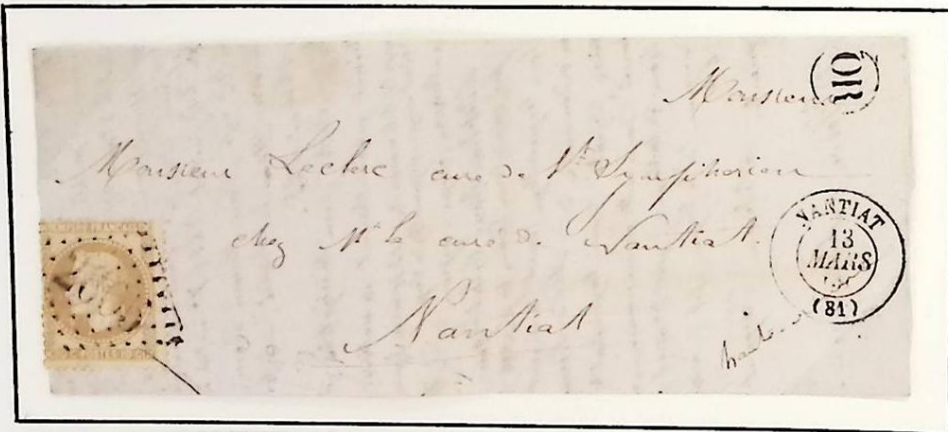 OR
Monsieur
Monsieur Leclerc curé de St Symphorien
chez Mr le curé de Nantiat.
Nantiat
NANTIAT
13
MARS
(81)
EMPIRE FRANÇAIS
POSTES